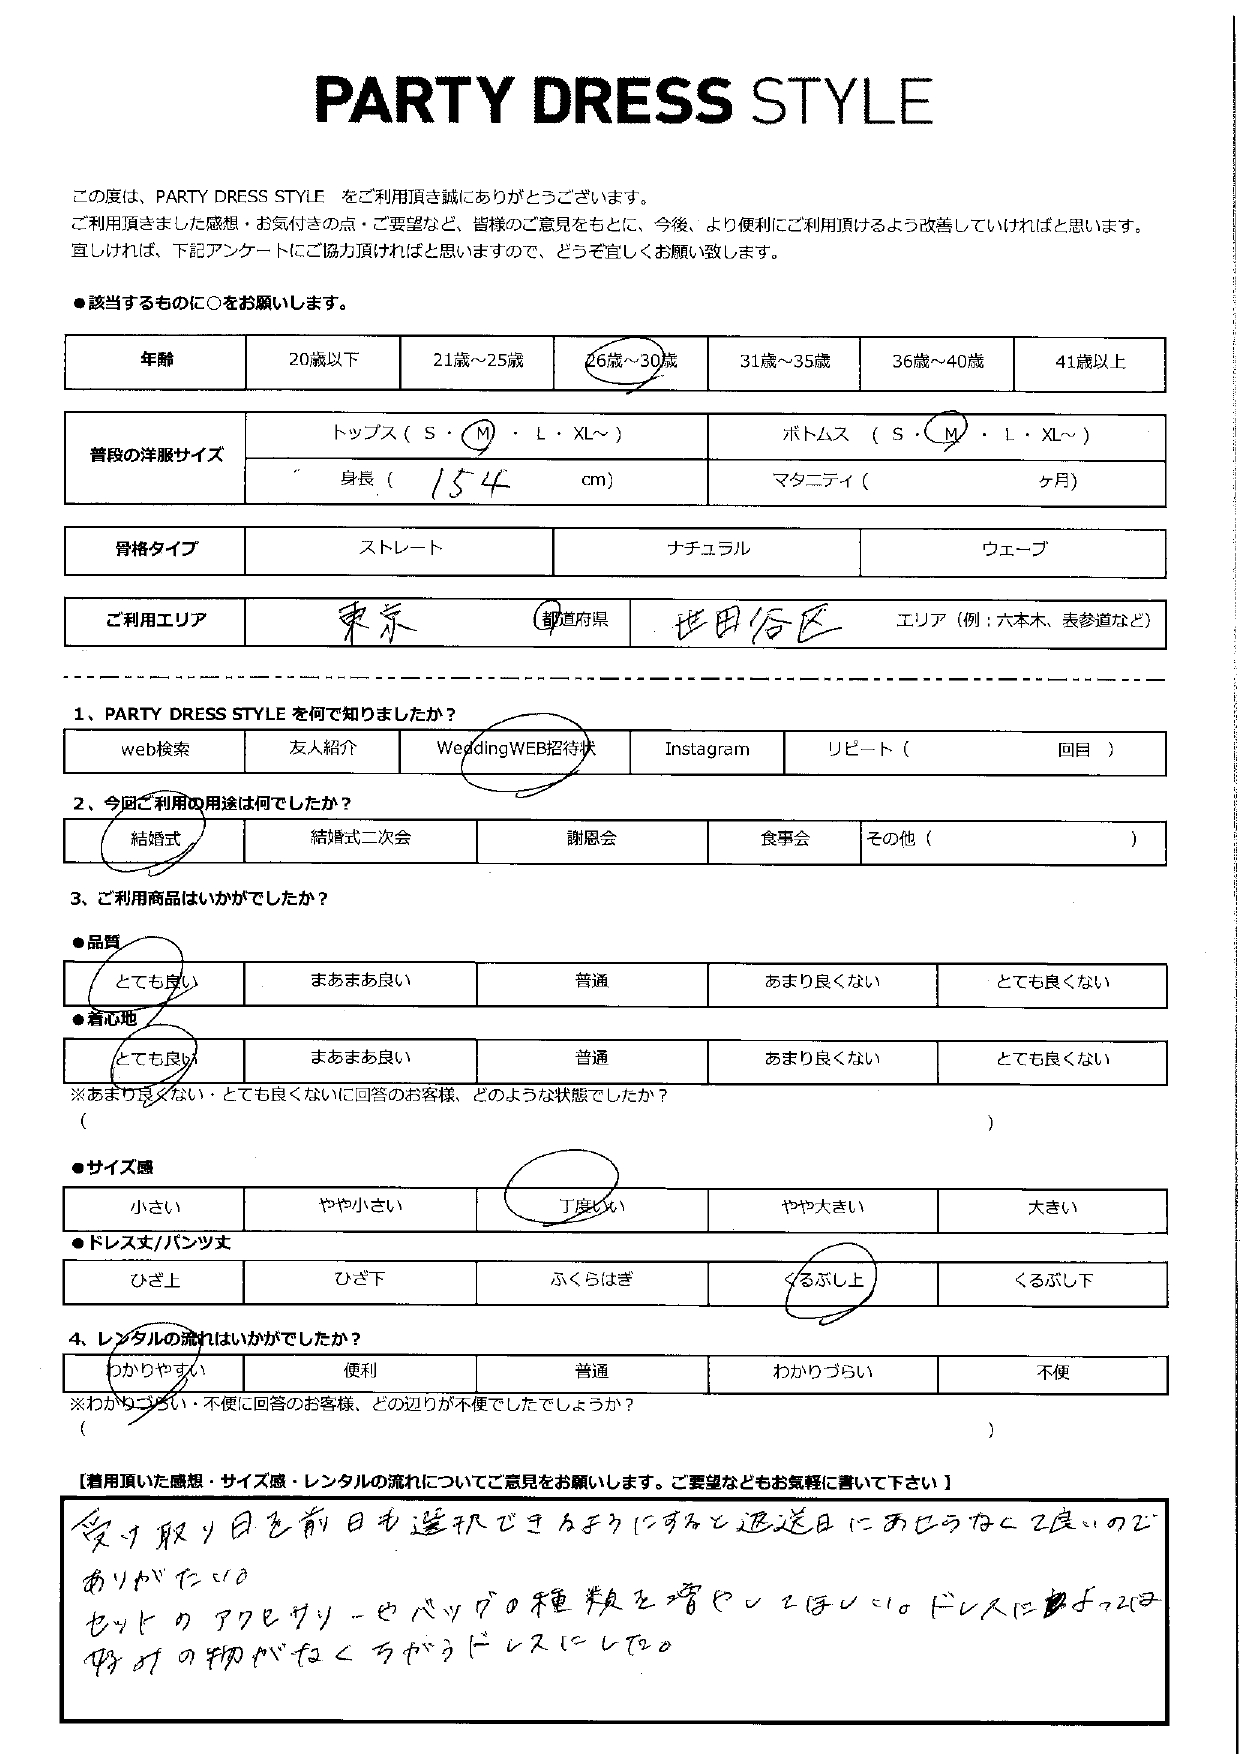 PARTY DRESS STYLE
この度は、PARTY DRESS STYLE をご利用頂き誠にありがとうございます。
ご利用頂きました感想・お気付きの点・ご要望など、皆様のご意見をもとに、今後、より便利にご利用頂けるよう改善していければと思います。
宜しければ、下記アンケートにご協力頂ければと思いますので、どうぞ宜しくお願い致します。
●該当するものに○をお願いします。
年齢 20歳以下 21歳～25歳 26歳～30歳 31歳～35歳 36歳～40歳 41歳以上
普段の洋服サイズ トップス ( S ・ M ・ L ・ XL～ ) ボトムス ( S ・ M ・ L ・ XL～ )
身長 ( 154 cm) マタニティ ( ヶ月)
骨格タイプ ストレート ナチュラル ウェーブ
ご利用エリア 東京 都道府県 世田谷区 エリア（例：六本木、表参道など）
1、PARTY DRESS STYLE を何で知りましたか？
web検索 友人紹介 WeddingWEB招待状 Instagram リピート ( 回目 )
2、今回ご利用の用途は何でしたか？
結婚式 結婚式二次会 謝恩会 食事会 その他 ( )
3、ご利用商品はいかがでしたか？
●品質
とても良い まあまあ良い 普通 あまり良くない とても良くない
●着心地
とても良い まあまあ良い 普通 あまり良くない とても良くない
※あまり良くない・とても良くないに回答のお客様、どのような状態でしたか？
( )
●サイズ感
小さい やや小さい 丁度いい やや大きい 大きい
●ドレス丈/パンツ丈
ひざ上 ひざ下 ふくらはぎ くるぶし上 くるぶし下
4、レンタルの流れはいかがでしたか？
わかりやすい 便利 普通 わかりづらい 不便
※わかりづらい・不便に回答のお客様、どの辺りが不便でしたでしょうか？
( )
【着用頂いた感想・サイズ感・レンタルの流れについてご意見をお願いします。ご要望などもお気軽に書いて下さい 】
受け取り日を前日も選択できるようにすると返送日にあせらなくて良いので
ありがたい。
セットのアクセサリーやバッグの種類を増やしてほしい。ドレスによっては
好みの物がなくちがうドレスにした。